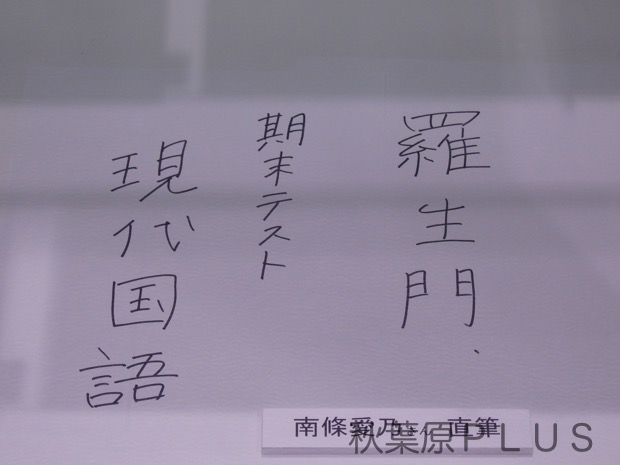 羅生門.
期末テスト
現代国語
南條愛乃さん 直筆
秋葉原PLUS